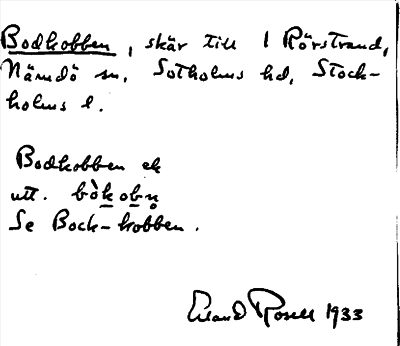 Bodkobben, skär till 1 Rörstrand,
Nämdö sn, Sotholms hd, Stock-
holms l.
Bodkobben ek
utt. bò̀kobn̥
Se Bock-kobben.
Erland Rosell 1933